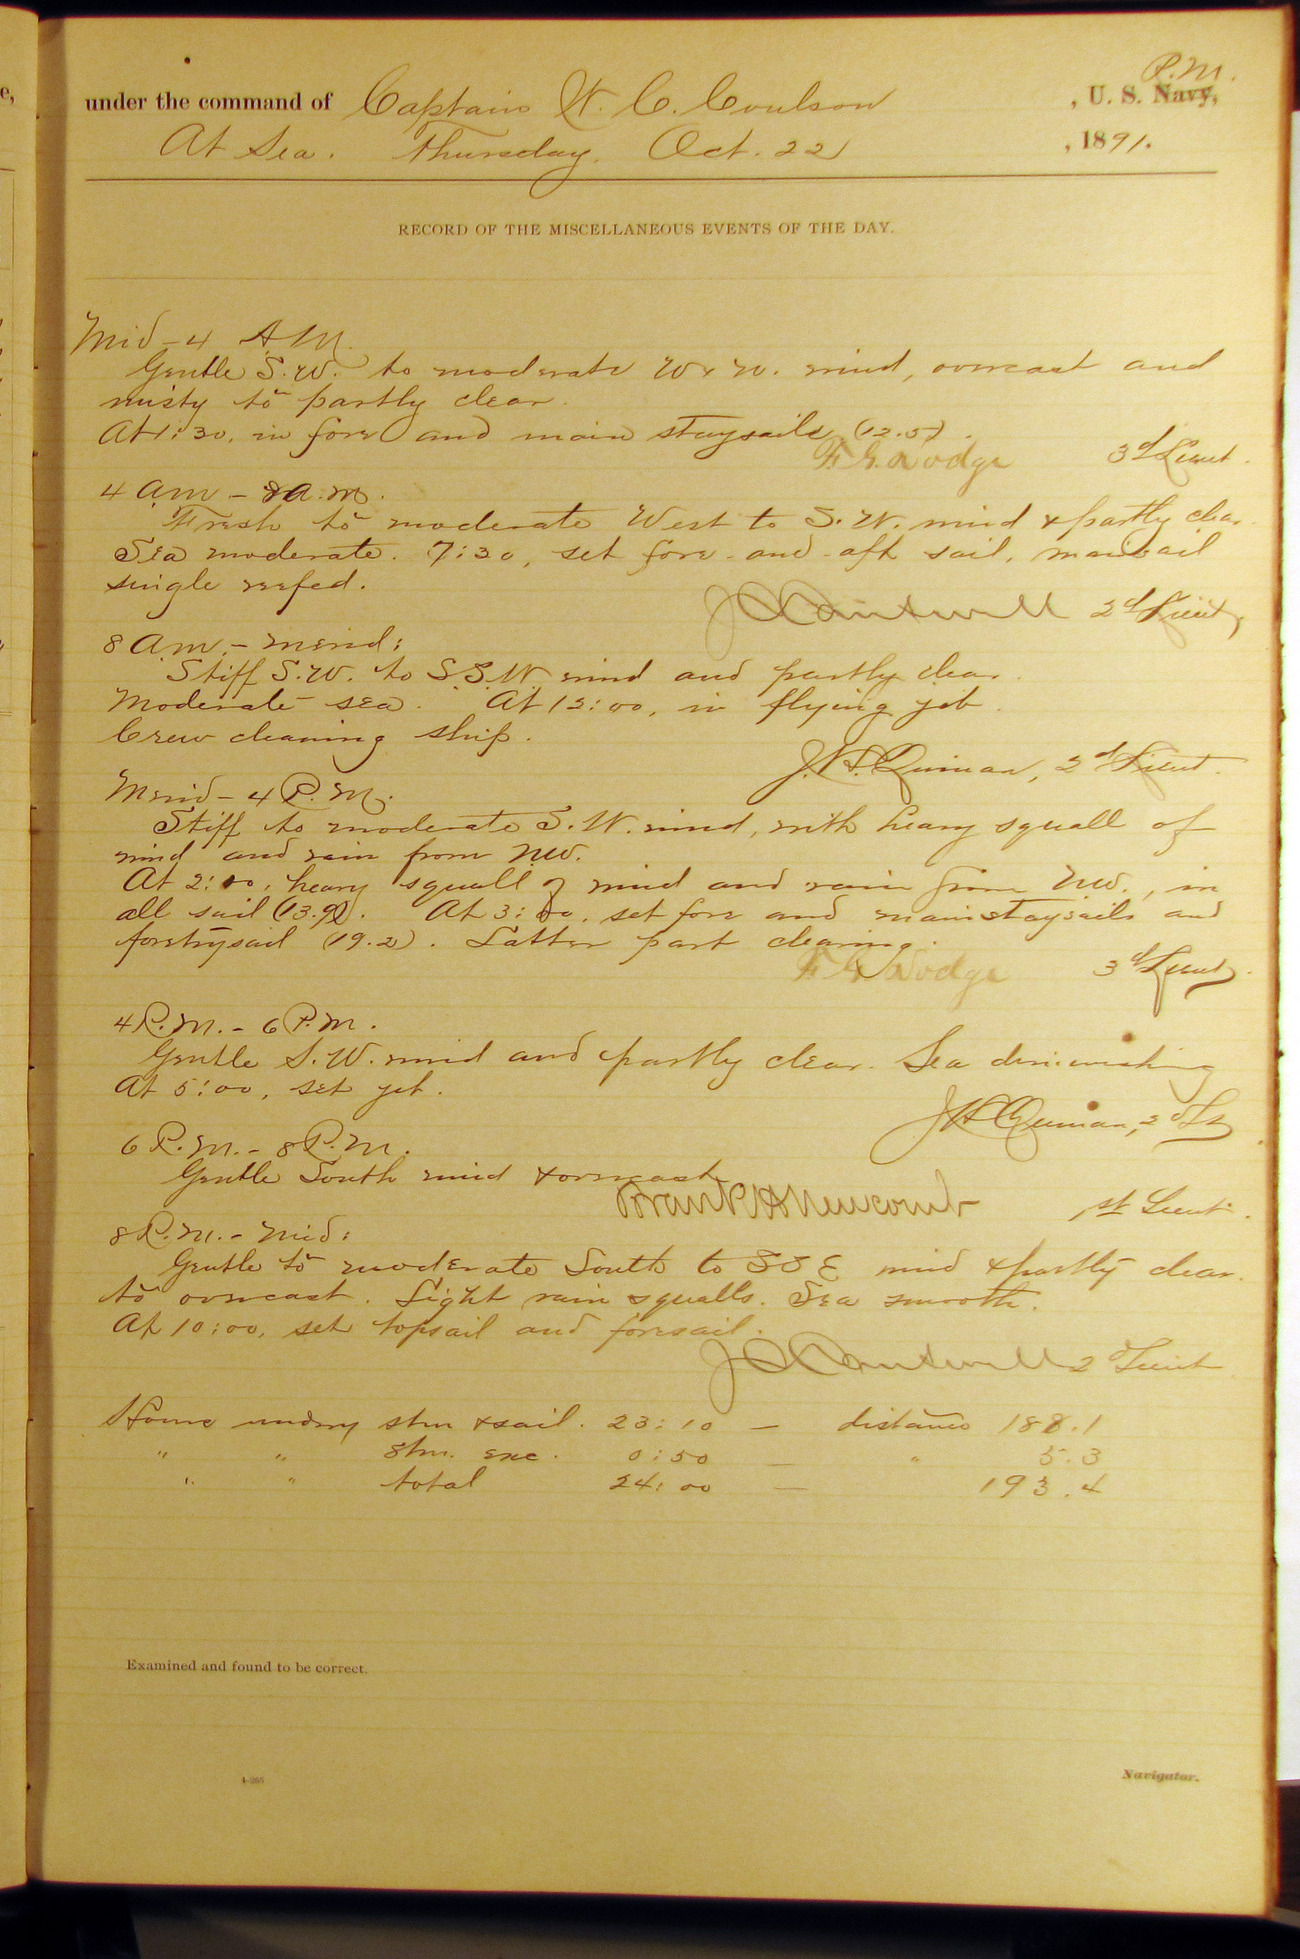 R.M.
under the command of Captain W. C. Coulson , U. S. Navy,
At Sea. Thursday, Oct. 22 , 1891.
RECORD OF THE MISCELLANEOUS EVENTS OF THE DAY.
Mid - 4 A.M.
Gentle S.W. to moderate W x N. wind, overcast and
misty to partly clear.
At 1:30, in fore and main staysails (12.5).
F. G. Dodge 3d Lieut.
4 a.m. - 8 a.m.
Fresh to moderate West to S.W. wind & partly clear.
Sea moderate. 7:30, set fore-and-aft sail, mainsail
single reefed.
J C Cantwell 2d Lieut,
8 a.m. - merid:
Stiff S.W. to S.S.W. wind and partly clear.
Moderate sea. At 12:00, in flying jib.
Crew cleaning ship.
J. H. Quinan, 2d Lieut.
Merid - 4 P.M.
Stiff to moderate S.W. wind, with heavy squall of
wind and rain from NW.
At 2:10, heavy squall of wind and rain from NW., in
all sail (13.9). At 3:00, set fore and mainstaysails and
foretrysail (19.2). Latter part clearing.
F. G. Dodge 3d Lieut.
4 P.M. - 6 P.M.
Gentle S.W. wind and partly clear. Sea diminishing
At 5:00, set jib.
J H Quinan, 2d Lt
6 P.M. - 8 P.M.
Gentle South wind & overcast.
Frank H Newcomb 1st Lieut.
8 P.M. - Mid:
Gentle to moderate South to SSE wind & partly clear.
to overcast. Light rain squalls. Sea smooth.
At 10:00, set topsail and foresail.
J C Cantwell 2d Lieut
Hours under stm & sail. 23:10 — distance 188.1
" " stm. exc. 0:50 — " 5.3
" " total 24:00 — 193.4
Examined and found to be correct.
4-265
Navigator.